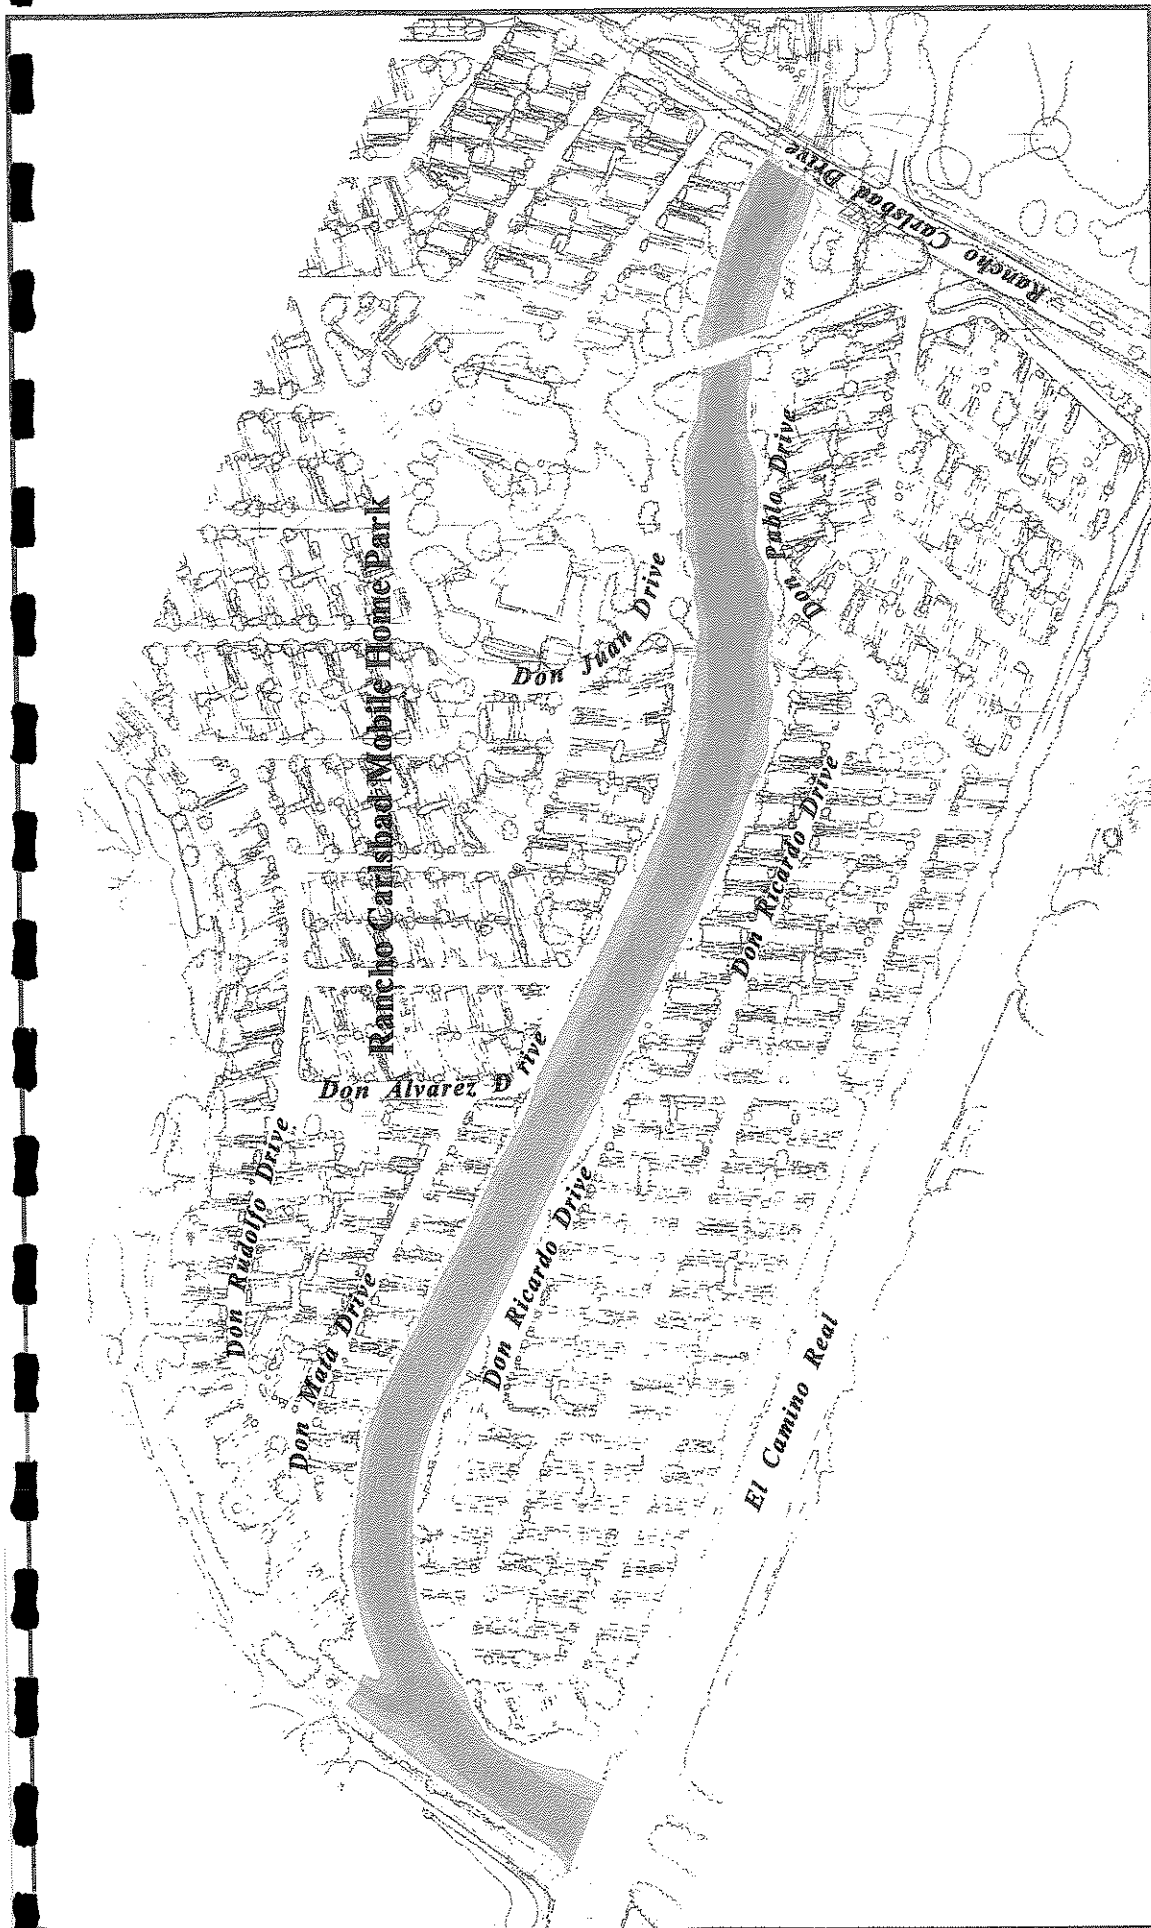 Rancho Carlsbad Drive
Don Pablo Drive
Don Juan Drive
Rancho Carlsbad Mobile Home Park
Don Ricardo Drive
Don Alvarez Drive
Don Rudolfo Drive
Don Ricardo Drive
Don Mata Drive
El Camino Real